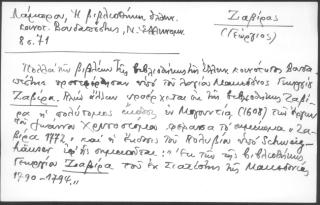 Λάμπρου, Ἡ βιβλιοθήκη ἑλλην.
κοινότ. Βουδαπέστης, Ν. Ἑλληνομν.
8 σ. 71
Ζαβίρας
(Γεώργιος)
Πολλὰ τῶν βιβλίων τῆς βιβλιοθήκης τῆς ἑλλην. κοινότητος Βουδα
πέστης προσεφέρθησαν ὑπὸ τοῦ λογίου Μακεδόνος Γεωργίου
Ζαβίρα. ἄλλων προσέρχεται ἐκ τῆς βιβλιοθήκης Ζαβί
ρα ἡ πολύτομος ἔκδοσις ἐν Μογουντίᾳ (1608) τῶν ἔργων
τοῦ Ἰωάννου Χρυσοστόμου φέρουσα τὸ σημείωμα "Ζα
βίρα 1772" καὶ ἡ ἔκδοσις τοῦ Πολυβίου ὑπὸ Schweig-
häuser ἐφ' ἧς σημειοῦται: "Ἐκ τῆς τῆς βιβλιοθήκης
Γεωργίου Ζαβίρα τοῦ ἐκ Σιατίστης τῆς Μακεδονίας
1790-1794."